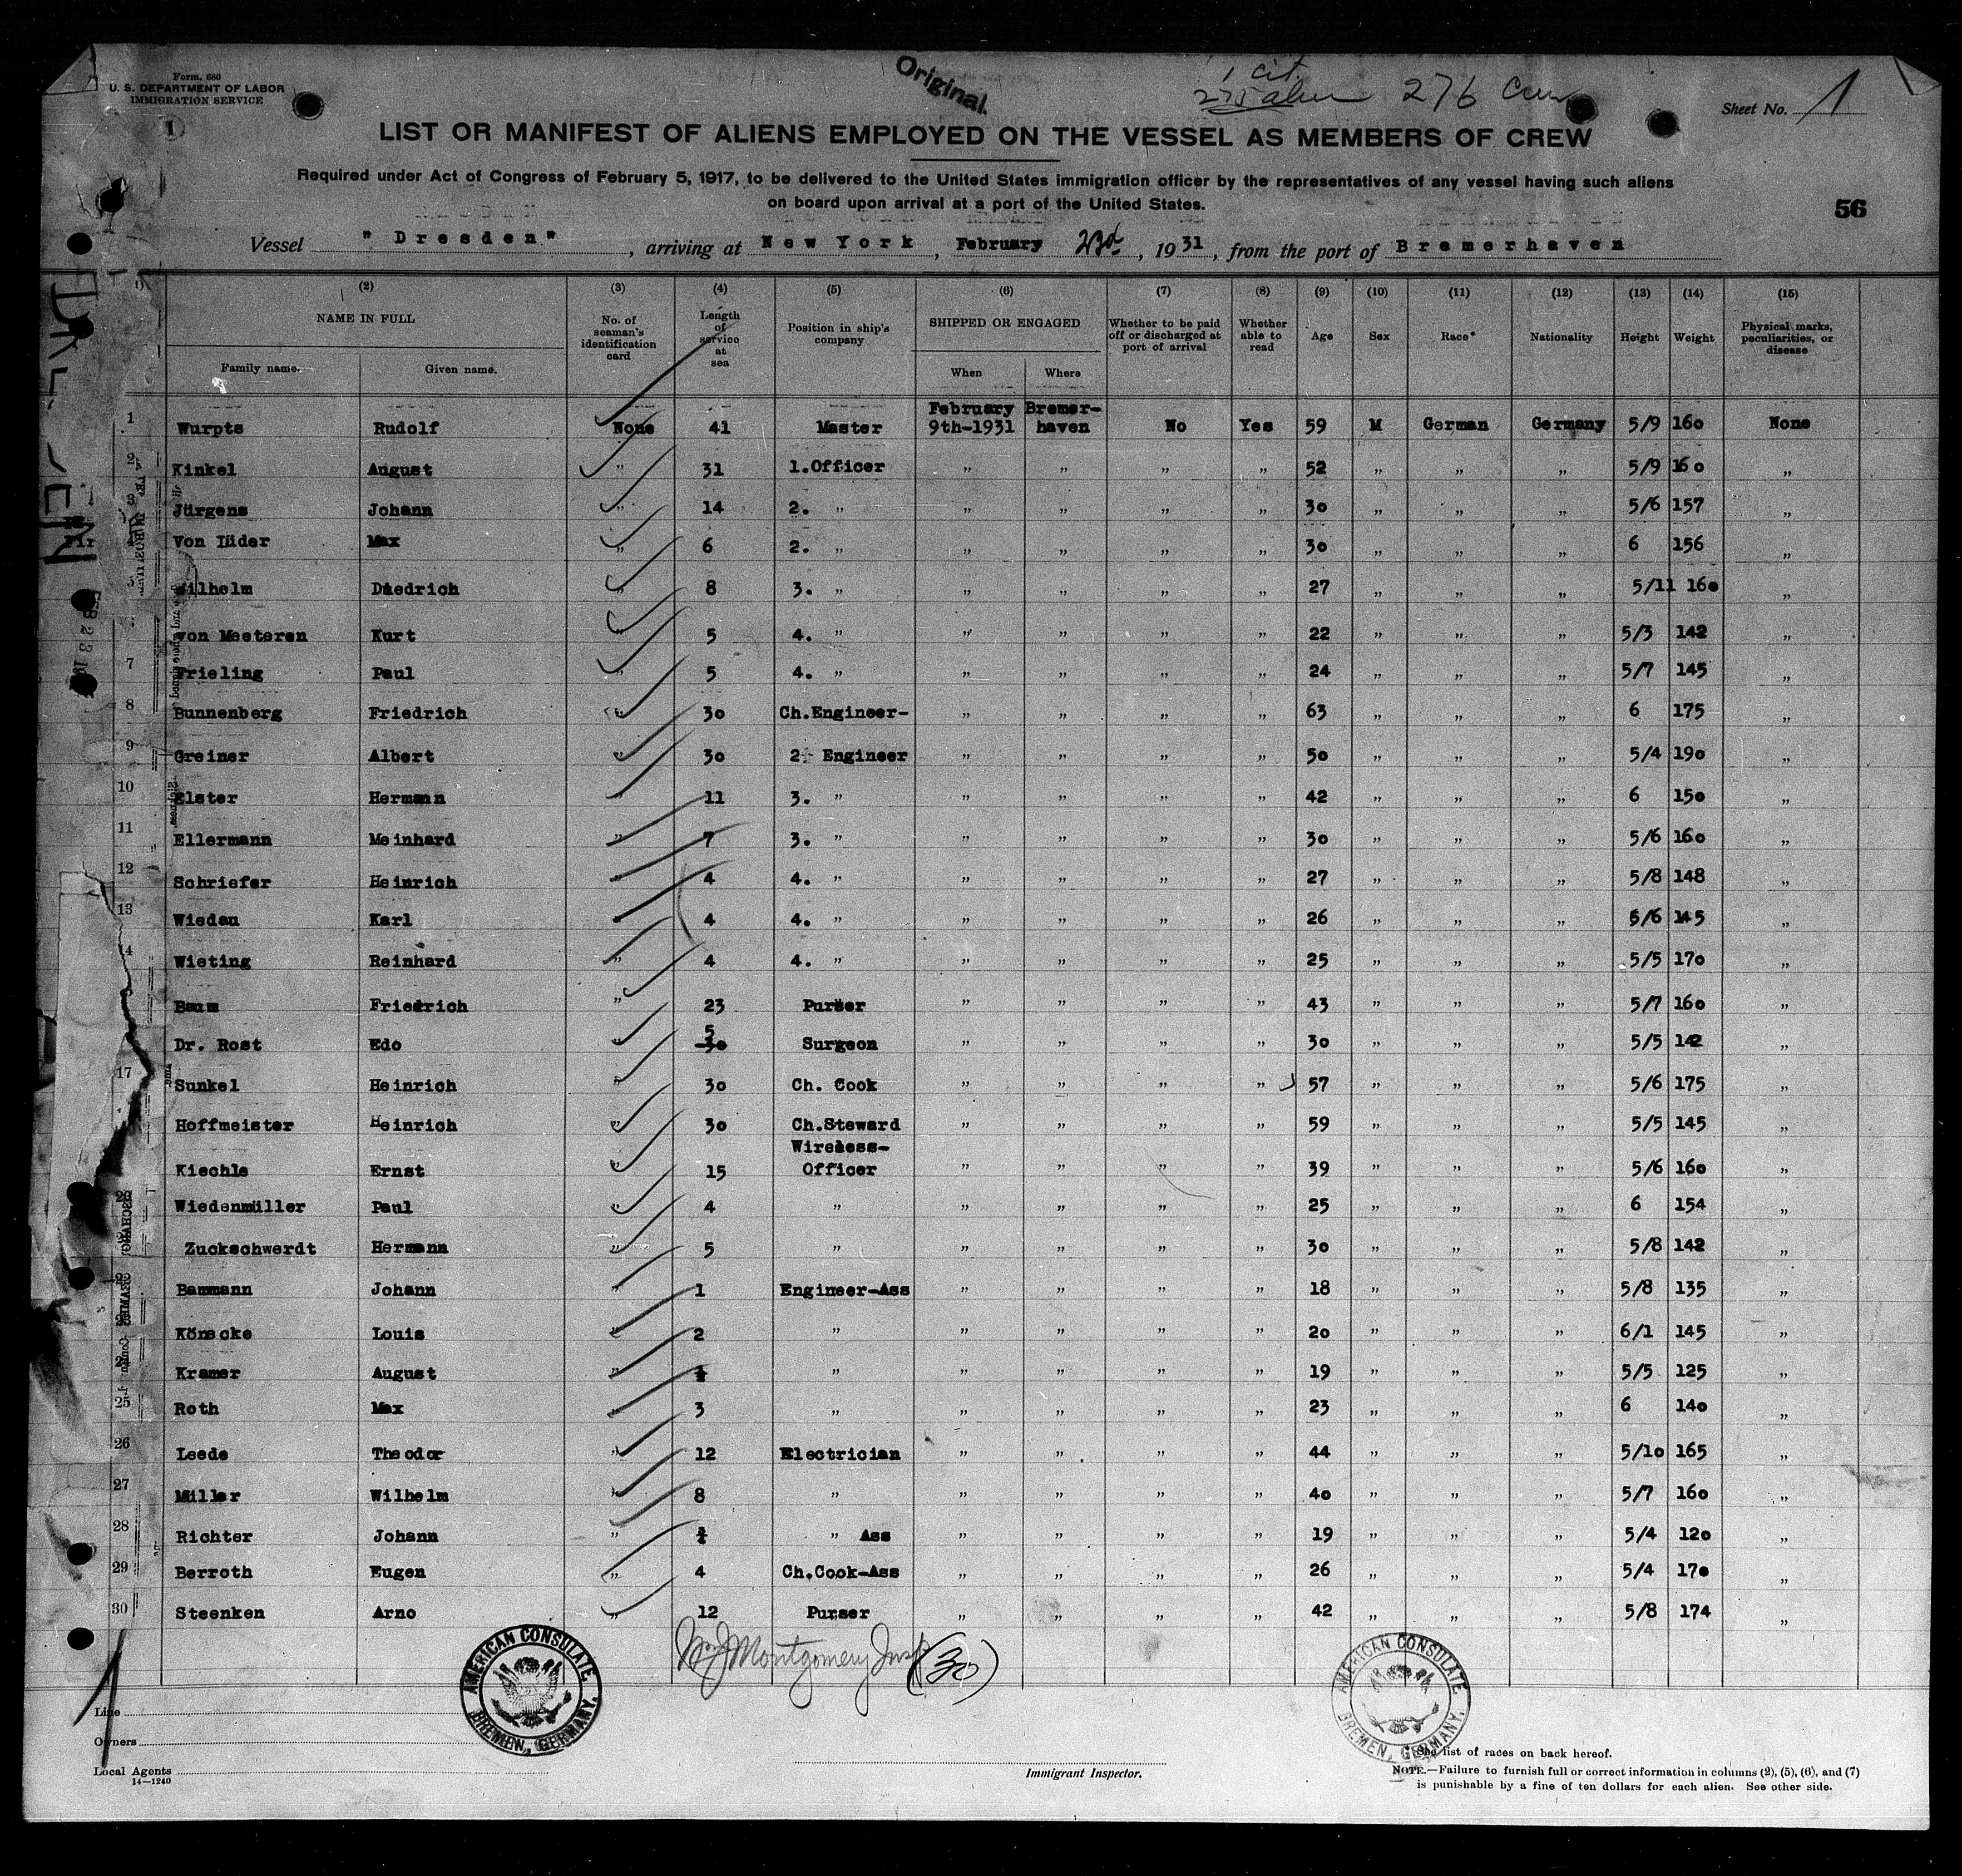 Form. 680
U. S. DEPARTMENT OF LABOR
IMMIGRATION SERVICE
Original.
1 cit.
275 alien 276 Crew
Sheet No. 1
LIST OR MANIFEST OF ALIENS EMPLOYED ON THE VESSEL AS MEMBERS OF CREW
Required under Act of Congress of February 5, 1917, to be delivered to the United States immigration officer by the representatives of any vessel having such aliens
on board upon arrival at a port of the United States.
56
Vessel "Dresden", arriving at New York, February 23d, 1931, from the port of Bremerhaven
(2) (3) (4) (5) (6) (7) (8) (9) (10) (11) (12) (13) (14) (15)
NAME IN FULL Family name. Given name. No. of seaman's identification card Length of service at sea Position in ship's company SHIPPED OR ENGAGED When Where Whether to be paid off or discharged at port of arrival Whether able to read Age Sex Race* Nationality Height Weight Physical marks, peculiarities, or disease
1 Wurpts Rudolf None 41 Master February 9th-1931 Bremer-haven No Yes 59 M German Germany 5/9 160 None
2 Kinkel August " 31 1.Officer " " " " 52 " " " 5/9 160 "
3 Jürgens Johann " 14 2. " " " " " 30 " " " 5/6 157 "
4 Von Lüder Max " 6 2. " " " " " 30 " " " 6 156 "
5 Wilhelm Diedrich " 8 3. " " " " " 27 " " " 5/11 160 "
von Meeteren Kurt " 5 4. " " " " " 22 " " " 5/3 142 "
7 Frieling Paul " 5 4. " " " " " 24 " " " 5/7 145 "
8 Bunnenberg Friedrich " 30 Ch.Engineer- " " " " 63 " " " 6 175 "
9 Greiner Albert " 30 2 Engineer " " " " 50 " " " 5/4 190 "
10 Elster Hermann " 11 3. " " " " " 42 " " " 6 150 "
11 Ellermann Meinhard " 7 3. " " " " " 30 " " " 5/6 160 "
12 Schriefer Heinrich " 4 4. " " " " " 27 " " " 5/8 148 "
13 Wiedau Karl " 4 4. " " " " " 26 " " " 5/6 145 "
14 Wieting Reinhard " 4 4. " " " " " 25 " " " 5/5 170 "
Baum Friedrich " 23 Purser " " " " 43 " " " 5/7 160 "
Dr. Rost Edo " 5 30 Surgeon " " " " 30 " " " 5/5 142 "
17 Sunkel Heinrich " 30 Ch. Cook " " " " 57 " " " 5/6 175 "
Hoffmeister Heinrich " 30 Ch.Steward " " " " 59 " " " 5/5 145 "
Kiechle Ernst " 15 Wireless-Officer " " " " 39 " " " 5/6 160 "
20 Wiedenmüller Paul " 4 " " " " " 25 " " " 6 154 "
Zuckschwerdt Hermann " 5 " " " " " 30 " " " 5/8 142 "
22 Bammann Johann " 1 Engineer-Ass " " " " 18 " " " 5/8 135 "
Könecke Louis " 2 " " " " " 20 " " " 6/1 145 "
Kramer August " " " " " " 19 " " " 5/5 125 "
25 Roth Max " 3 " " " " " 23 " " " 6 140 "
26 Leede Theodor " 12 Electrician " " " " 44 " " " 5/10 165 "
27 Müller Wilhelm " 8 " " " " " 40 " " " 5/7 160 "
28 Richter Johann " " Ass " " " " 19 " " " 5/4 120 "
29 Berroth Eugen " 4 Ch.Cook-Ass " " " " 26 " " " 5/4 170 "
30 Steenken Arno " 12 Purser " " " " 42 " " " 5/8 174 "
Wm J Montgomery Insp (30)
AMERICAN CONSULATE, BREMEN, GERMANY.
AMERICAN CONSULATE, BREMEN, GERMANY.
Line
Owners
Local Agents
14—1240
Immigrant Inspector.
* See list of races on back hereof.
NOTE.—Failure to furnish full or correct information in columns (2), (5), (6), and (7)
is punishable by a fine of ten dollars for each alien. See other side.